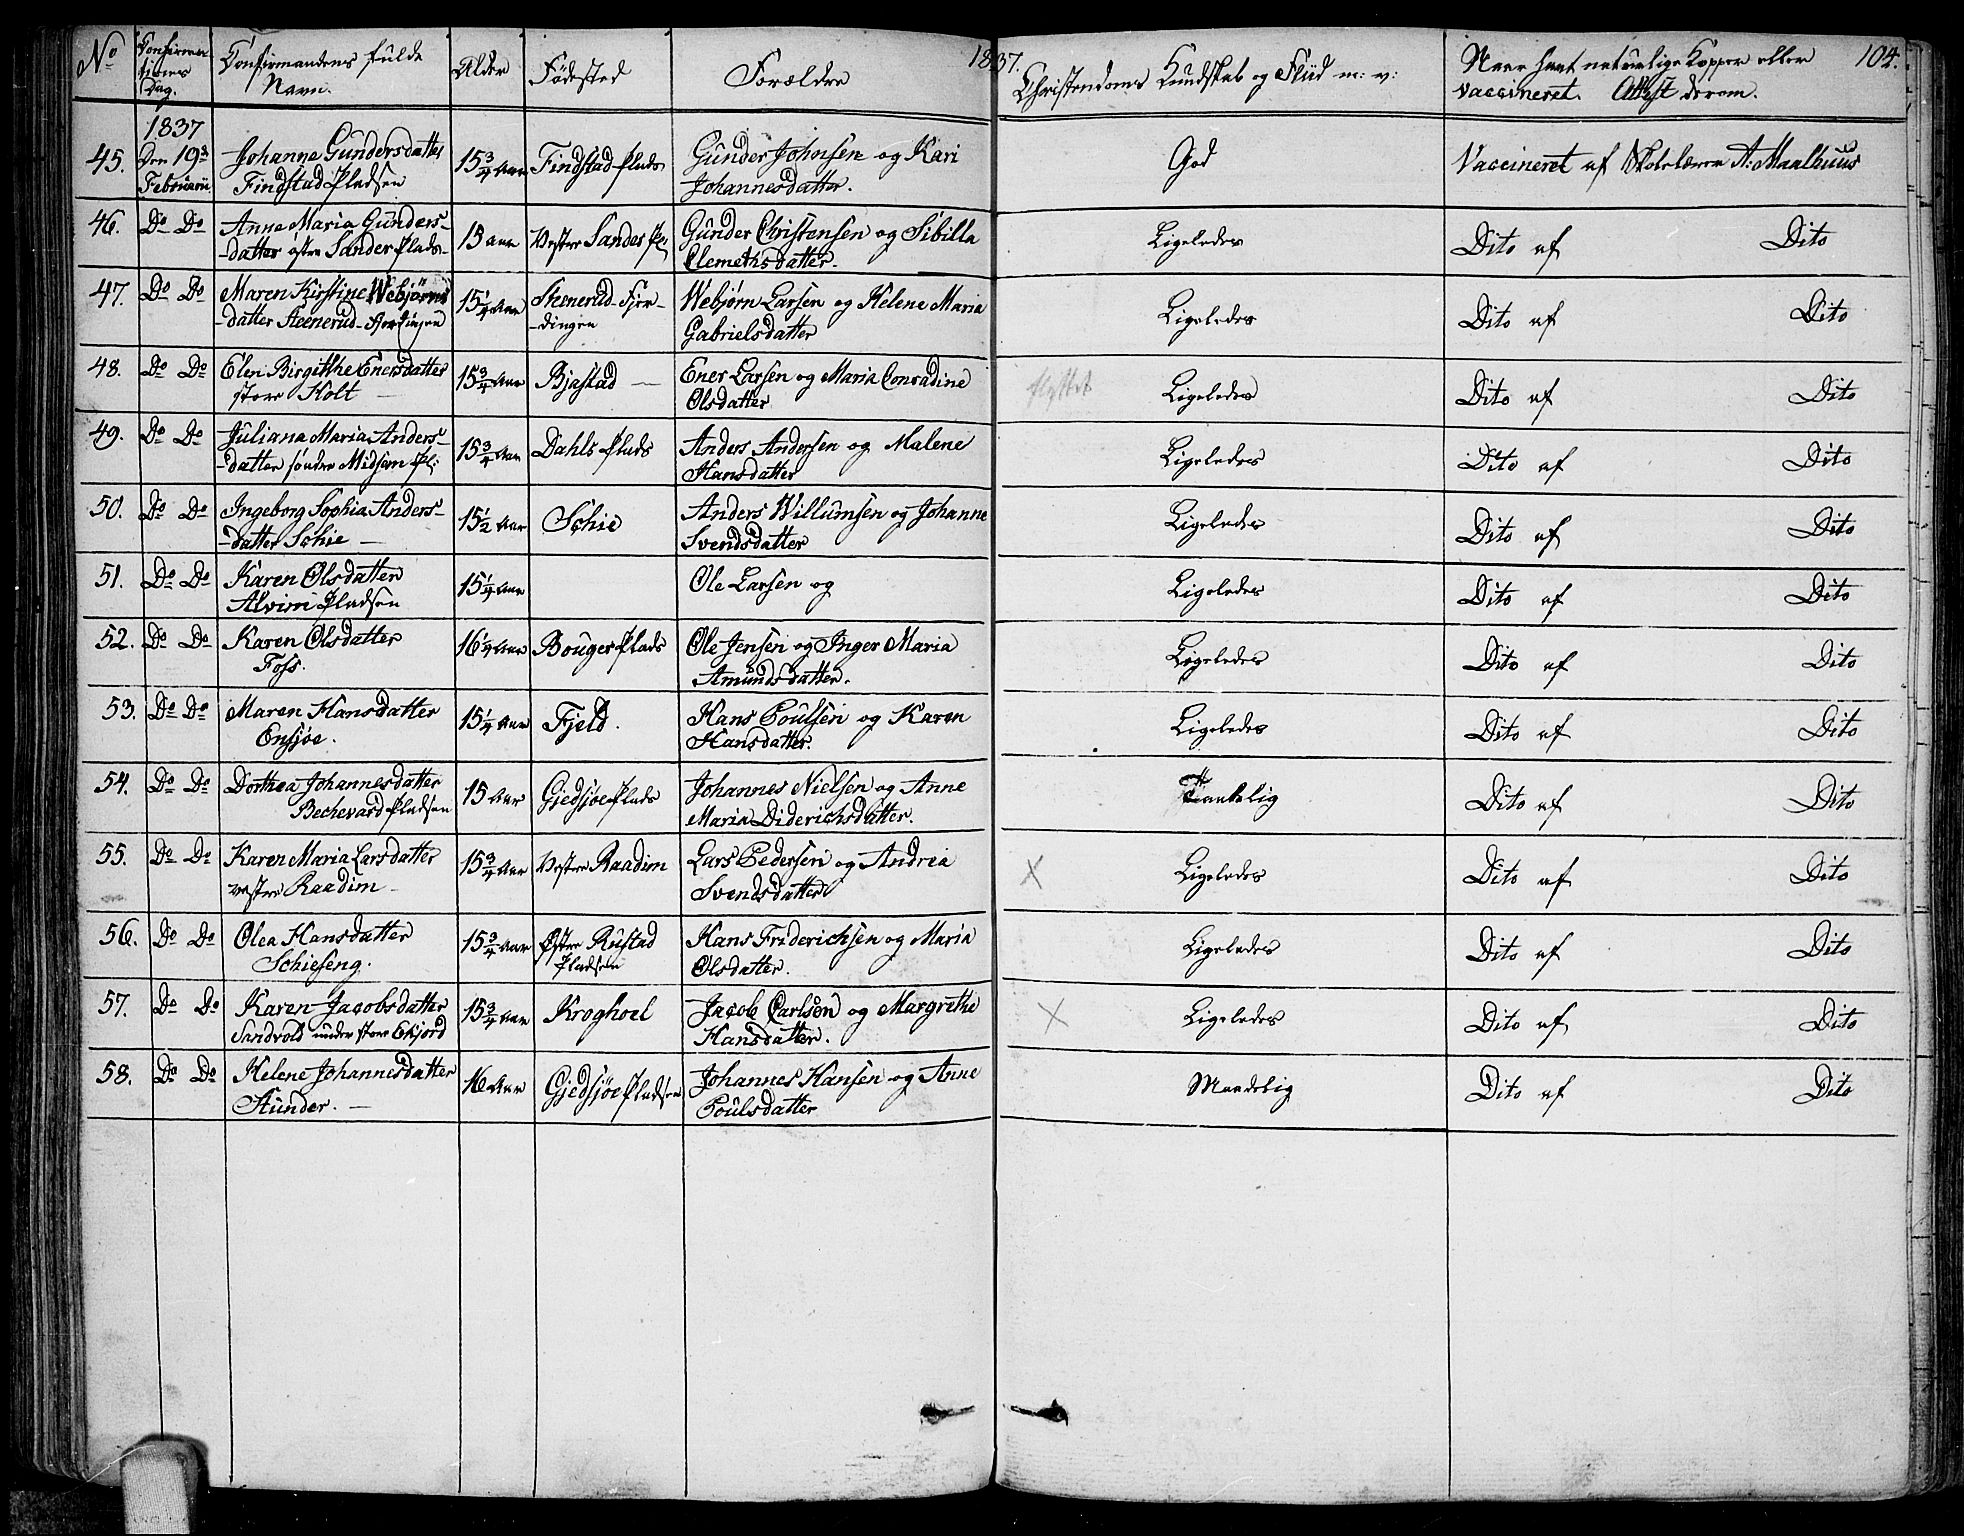 1837. 104.
No Confirmations Dag. Confirmandens fulde Navn. Alder Fødested Forældre Christendoms Kundskab og Fliid m: v: Naar havt naturlige Kopper eller vaccineret. Attest derom.
45. 1837 Den 19de Februarii Johanne Gundersdatter Findstad Pladsen 15 3/4 Aar Findstad Plads Gunder Johnsen og Kari Johannesdatter. God Vaccineret af Skolelærer A: Maalhuus
46. Do Do Anne Maria Gundersdatter østre Sander Plads 15 aar Vestre Sander Pl: Gunder Christensen og Sibilla Clemethsdatter. Ligeledes Dito af Dito
47. Do Do Maren Kirstine Webjørnsdatter Steenerud-Fjerdingen 15 1/4 Aar Stenerud-Fjerdingen Webjørn Larsen og Helene Maria Gabrielsdatter Ligeledes Dito af Dito
48. Do Do Elen Birgitthe Enersdatter store Holt 15 3/4 Aar Bjastad Ener Larsen og Maria Conradine Olsdatter flyttet Ligeledes Dito af Dito
49. Do Do Juliana Maria Andersdatter søndre Midsem Pl: 15 3/4 Aar Dahls Plads Anders Andersen og Malene Hansdatter Ligeledes Dito af Dito
50. Do Do Ingeborg Sophia Andersdatter Schie 15 1/2 Aar Schie Anders Willumsen og Johanne Svendsdatter Ligeledes Dito af Dito
51. Do Do Karen Olsdatter Alvim Pladsen 15 1/4 Aar Ole Larsen og Ligeledes Dito af Dito
52. Do Do Karen Olsdatter Foss. 16 1/4 Aar Bouger Plads Ole Jensen og Inger Maria Amundsdatter. Ligeledes Dito af Dito
53. Do Do Maren Hansdatter Ensjøe. 15 1/4 Aar Fjeld. Hans Poulsen og Karen Hansdatter. Ligeledes Dito af Dito
54. Do Do Dorthea Johannesdatter Bechevard Pladsen 15 Aar Gjedsjøe Plads Johannes Nielsen og Anne Maria Diderichsdatter. Taalelig Dito af Dito
55. Do Do Karen Maria Larsdatter vestre Raadim 15 3/4 Aar Vestre Raadim Lars Pedersen og Andrea Svendsdatter X Ligeledes Dito af Dito
56. Do Do Olea Hansdatter Schieseng. 15 3/4 Aar Østre Rustad Pladsen Hans Friderichsen og Maria Olsdatter. Ligeledes Dito af Dito
57. Do Do Karen Jacobsdatter Sandvold under store Ekjord 15 3/4 Aar Kroghoel Jacob Carlsen og Margrethe Hansdatter. X Ligeledes Dito af Dito
58. Do Do Helene Johannesdatter Stunder. 16 Aar Gjedsjøe Pladsen Johannes Hansen og Anne Poulsdatter Maadelig Dito af Dito